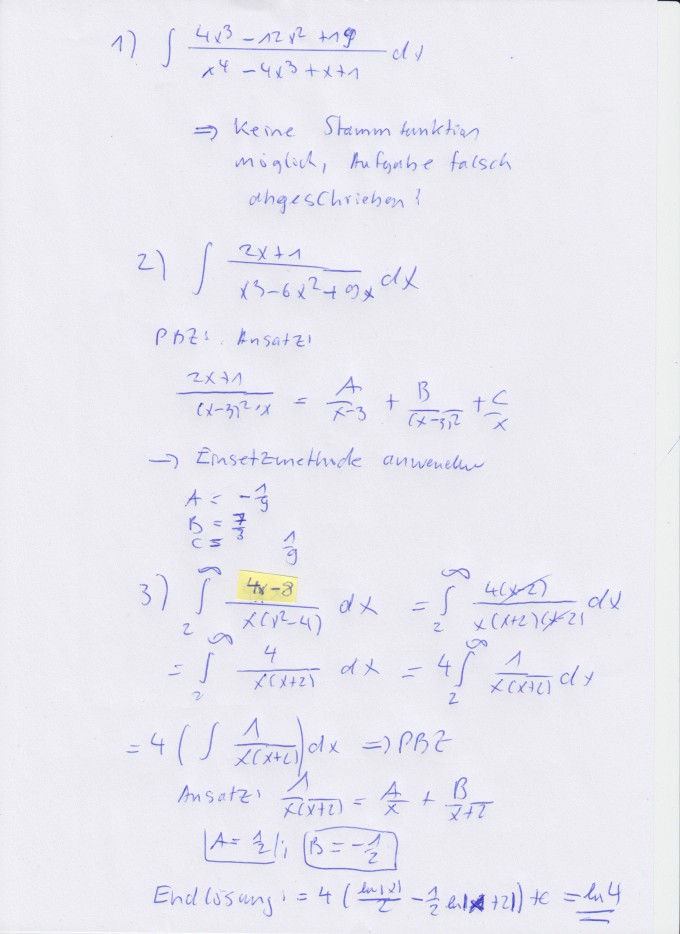 1) ∫ (4x³ - 12x² + 19)/(x⁴ - 4x³ + x + 1) dx
⇒ Keine Stammfunktion
möglich, Aufgabe falsch
abgeschrieben!
2) ∫ (2x+1)/(x³-6x²+9x) dx
PBZ: Ansatz:
(2x+1)/((x-3)²·x) = A/(x-3) + B/(x-3)² + C/x
→ Einsetzmethode anwenden
A = -1/9
B = 7/3
C = 1/9
3) ∫₂^∞ (4x-8)/(x(x²-4)) dx = ∫₂^∞ (4(x-2))/(x(x+2)(x-2)) dx
= ∫₂^∞ 4/(x(x+2)) dx = 4∫₂^∞ 1/(x(x+2)) dx
= 4 (∫ 1/(x(x+2)) dx ⇒ PBZ
Ansatz: 1/(x(x+2)) = A/x + B/(x+2)
A = 1/2 ; B = -1/2
Endlösung: = 4 (ln|x|/2 - 1/2 ln|x+2|) + c = ln 4